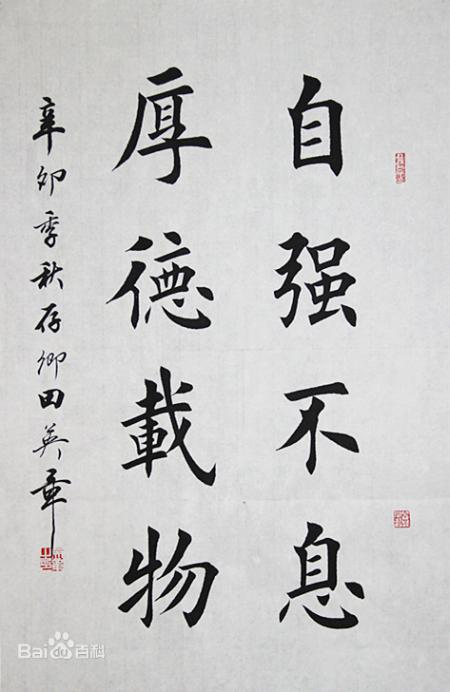 自强不息
厚德載物
辛卯季秋存卿田英章
Bai du 百科